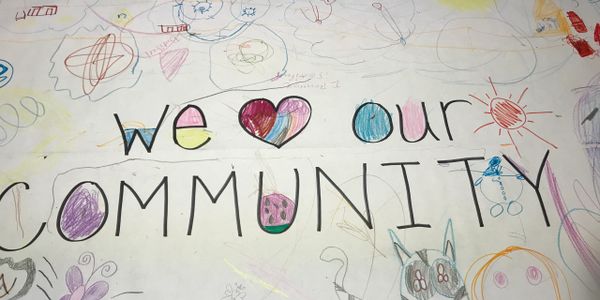 we ❤ our
COMMUNITY